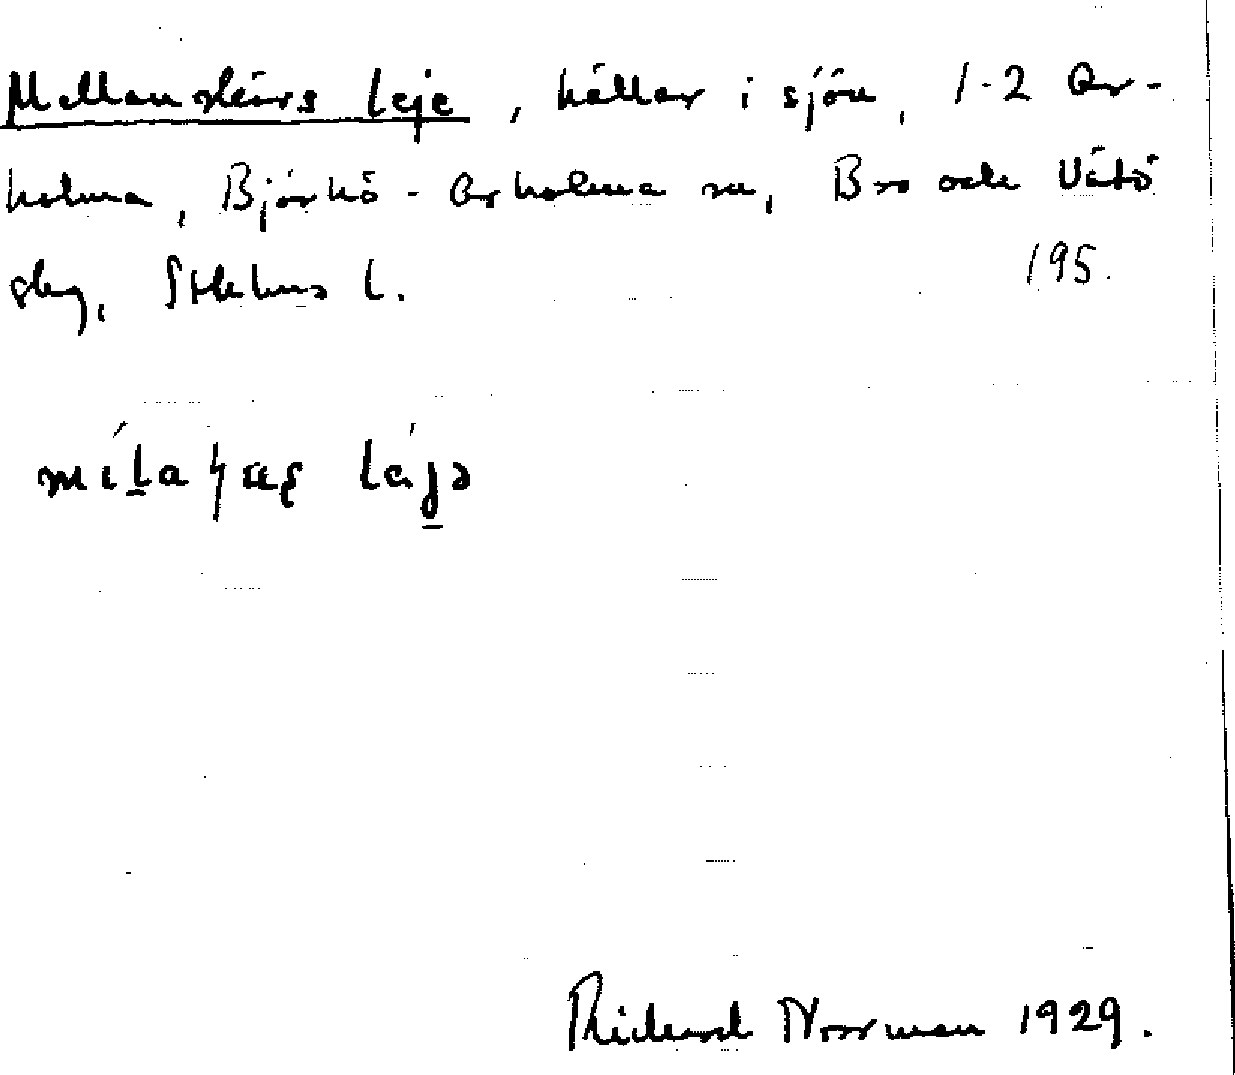 Mellanskärs leje, hällar i sjön, 1-2 Ar-
holma, Björkö-Arholma sn, Bro och Vätö
skg, Sthlms l. 195.
Rickard Norrman 1929.